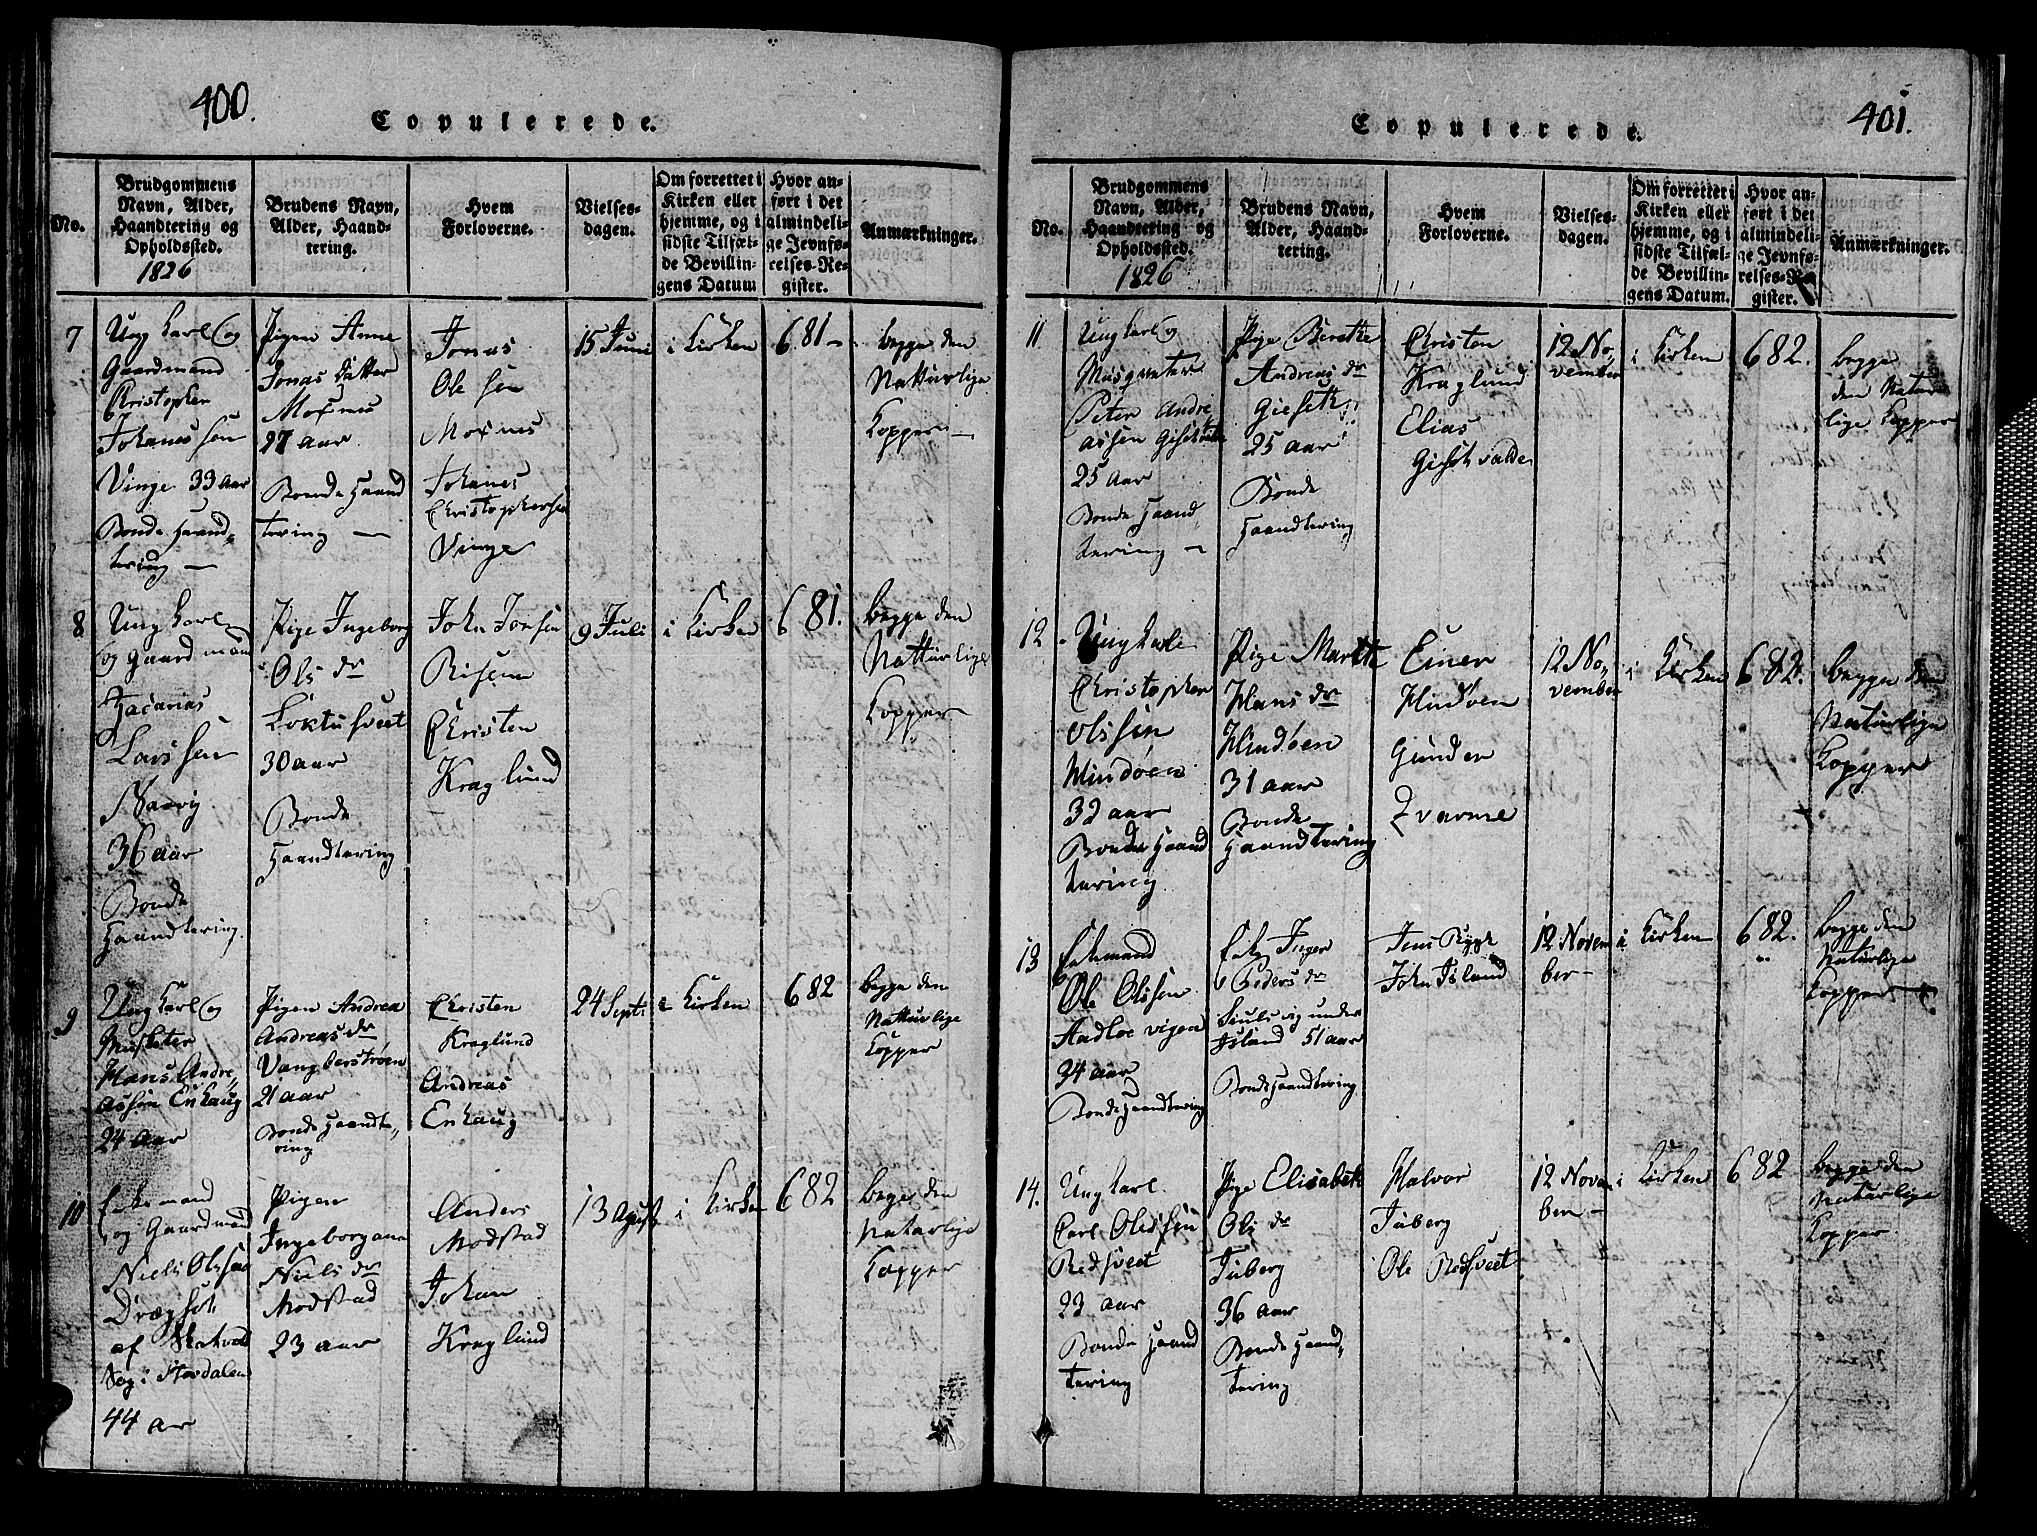 400.
Copulerede.
No.
Brudgommens
Navn, Alder,
Haandtering og
Opholdssted.
1826
Brudens Navn,
Alder, Haand-
tering.
Hvem
Forloverne.
Vielses-
dagen.
Om forrettet i
Kirken eller
hjemme, og i
sidste Tilfæl-
de Bevillin-
gens Datum
Hvor an-
ført i det
almindeli-
ge Jevnfø-
relses-Re-
gister.
Anmærkninger.
7
Ung karl og
Gaardmand
Christopher
Johannes sen
Vinge 33 aar
Bonde Haand-
tering —
Pigen Anne
Jonas Datter
Moxnes
27 aar
Bonde Haand
tering —
Jonas
Ole sen
Moxnes
Johanes
Christophersen
Vinge
15 Juni
i Kirken
681 —
begge den
Natturlige
Kopper —
8
Ung karl
og Gaard mand
Zacarias
Lars sen
36 aar
Bonde
Haandtering.
Pige Ingeborg
Ols dr
30 aar
Bonde
Haandtering
John Jonsen
Risem
Christen
Kraglund
9 Juli
i Kirken
681.
begge den
Natturlige
Kopper
9
Ung karl og
Musketer
Hans Andre,
assen Enhaug
24 aar
Pigen Andrea
Andreas dr
21 aar
Bonde Haandte,
ring
Christen
Kraglund
Andreas
Enhaug
24 Sept:
i Kirken
682
begge den
Natturlige
Kopper
10
Enkemand
og Gaardmand
Niels Olsen
af Skatval
Sog i Størdalen
44 ar
Pigen
Ingeborgana
Niels dr
Modstad
23 aar
Anders
Modstad
Johan
Kraglund
13 Agust
i Kirken
682
bege den
Naturlige
Kopper
401.
Copulerede.
No.
Brudgommens
Navn, Alder,
Haandtering og
Opholdssted.
1826
Brudens Navn,
Alder, Haand-
tering.
Hvem
Forloverne.
Vielses-
dagen.
Om forrettet i
Kirken eller
hjemme, og i
sidste Tilfæl-
de Bevillin-
gens Datum.
Hvor an-
ført i det
almindeli-
ge Jevnfø-
relses-Re-
gister.
Anmærkninger.
11
Ung karl og
Musqueter
Peter Andre,
assen
25 aar
Bonde Haand,
tering —
Pige Beretke
Andreas dr
25 aar
Bonde
Haandtering
Christen
Kraglund
Elias
12 No,
vember
i Kirken
682.
begge
den Natur
lige Kopper
12
Ung karl
Christopher
Olssen
Hindöen
32 aar
Bonde Haand
tering
Pige Marete
Hans dr
Hindöen
31 aar
Bonde
Haandtering
Einer
Hindöen
Gunder
12 No,
vember
i Kirken
682.
begge den
Naturlige
Kopper
13
Enkemand
Ole Olssen
34 aar
Bonde Haandtering
Enke Inger
Peders dr
under
Island 51 aar
Bonde Haandtering
Jens Rygh
John Island
12 Novem
ber —
i Kirken
682.
begge den
Naturlige
Kopper
14.
Ung karl
Carl Olessen
Redsveet
23 aar
Bonde Haand
tering
Pige Elisabeth
Ols dr
Tuberg
36 aar
Bonde Haand,
tering
Halvor
Tuberg
Ole Redsveet
12 Novem
ber —
i Kirken
682
begge den
Naturlige
Kopper